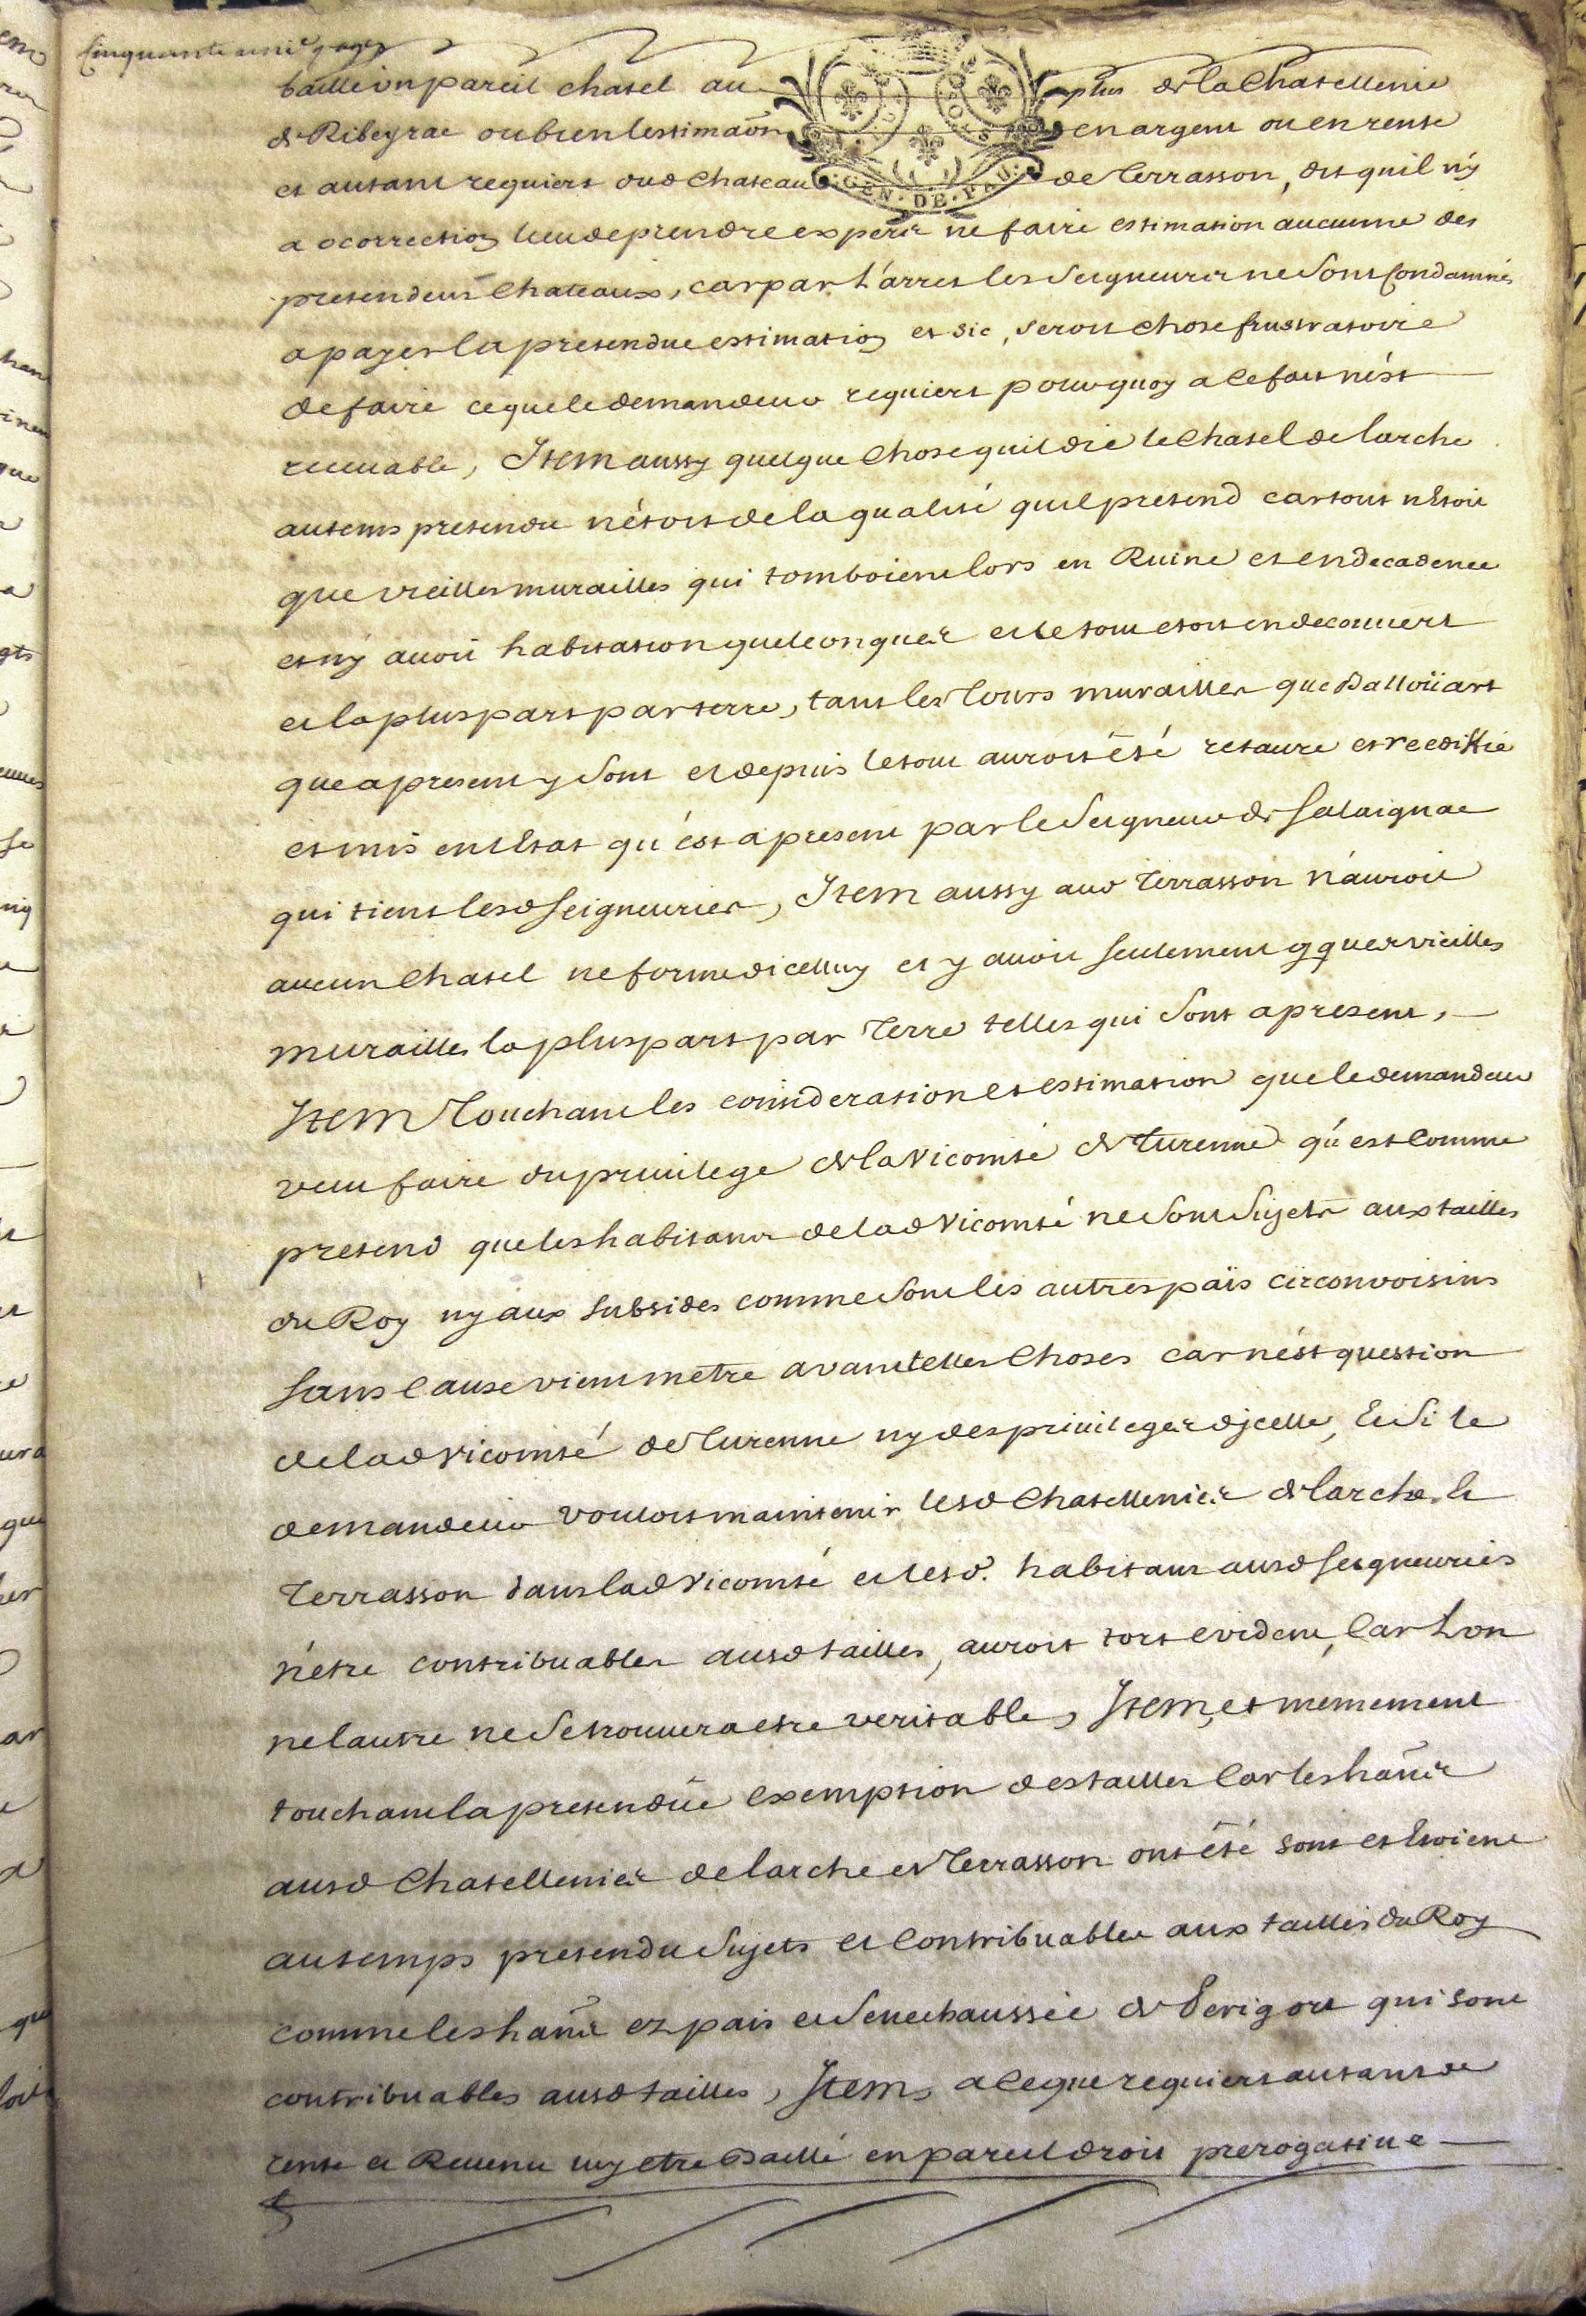 baillé un pareil chatel au plus de la Chatellenie
de Ribeyrac ou bien lestimaõn en argent ou en rente
et autant requiert dud Chateau de Terrasson, dit quil n'y
a o correction lieu de prendre expertz ne faire estimation aucunne des
pretendeus Chateaux, car par L'arret les Seigneurie ne sont Condamnés
a payer la pretendue estimation et sic, seroit chose frustratoire
de faire ce que le demandeur requiert pourquoy a ce fait n'ést
receuable, Item aussy quelque Chose quil die le Chatel de larche
au tems pretendu n'étoit de la qualité quil pretend car tout n'étoit
que vieilles murailles qui tomboient lors en Ruine et en decadence
et n'y auoit habitation quelconque et le tout etoit en decouuert
et la pluspart par terre, tant les Tours murailles que Ballouart
que a present y sont et depuis le tout auroit été retaure et reediffié
et mis en l'Etat qu'ést a present par le Seigneur de Salaignac
qui tient lesd Seigneuries, Item aussy aud Terrasson n'auroit
aucun Chatel ne forme dicelluy et y auoit seulement qques vieilles
murailles la pluspart par Terre telles qui sont a present,
Item Touchant les consideration et estimation que le demandeur
veut faire du priuilege de la Vicomté de Turenne qu'est Comme
pretend que les habitans de lad Vicomté ne sont sujets aux tailles
du Roy ny aux subsides comme sont les autres païs circonvoisins
sans Cause vient metre avant telles Choses car n'ést question
de lad Vicomté de Turenne ny des priuileges d'jcelle, Et si le
demandeur vouloit maintenir lesd Chatellenies de larche et
Terrasson dans lad Vicomté et lesd. habitans ausd Seigneuries
n'étre contribuables ausd tailles, auroit tort evident, Car L'on
ne lautre ne se trouuera etre veritable, Item, et mememeent
touchant la pretendüe Exemption des tailles Car les hañs
ausd Chatellenies de larche et Terrasson ont été sont et Etoient
au temps pretendu sujets et Contribuables aux tailles du Roy
comme les hañs ez pais et Senechaussée de Perigort qui sont
contribuables ausd tailles, Item, a ce que requiert autant de
rente et Reuenu luy etre Baillé en pareil droit prerogatiue